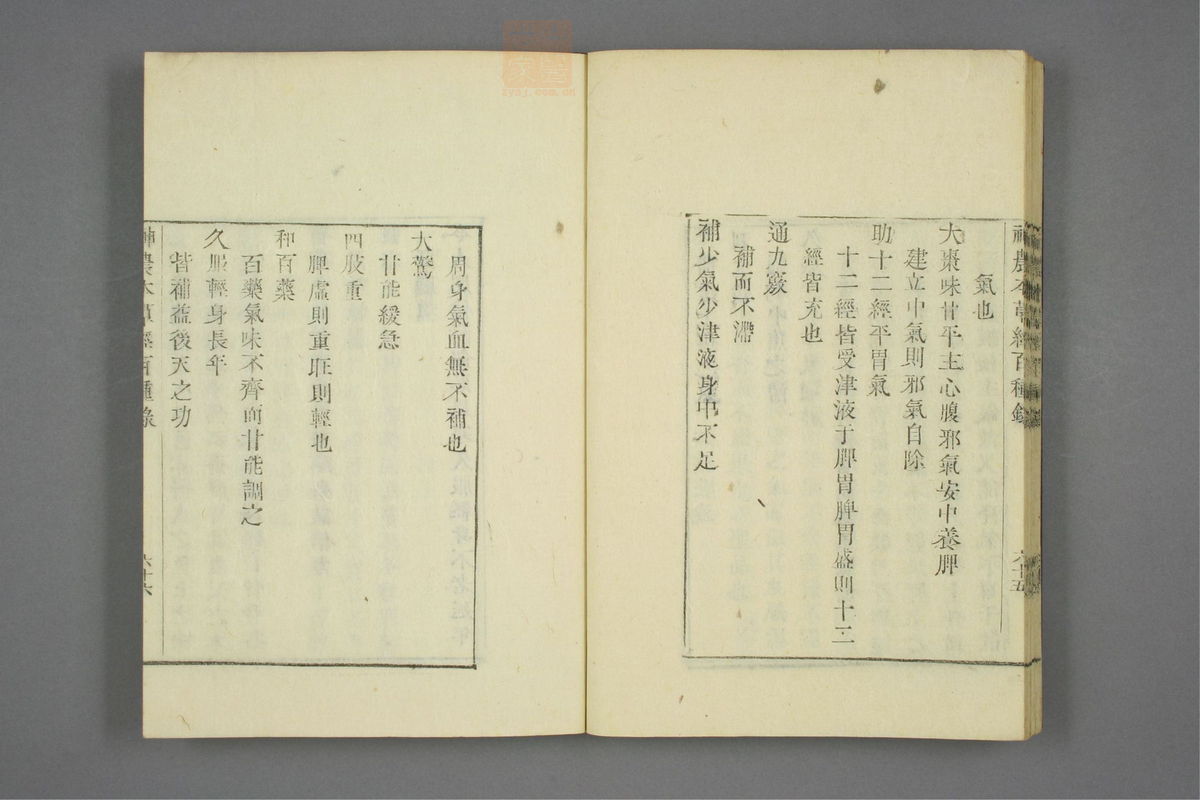 神農本草經百種錄
六十五
氣也
大棗味甘平主心腹邪氣安中養脾
建立中氣則邪氣自除
助十二經平胃氣
十二經皆受津液于脾胃脾胃盛則十二
經皆充也
通九竅
補而不滯
補少氣少津液身中不足
周身氣血無不補也
大驚
甘能緩急
四肢重
脾虛則重旺則輕也
和百藥
百藥氣味不齊而甘能調之
久服輕身長年
皆補益後天之功
神農本草經百種錄
六十六
zysj.com.cn